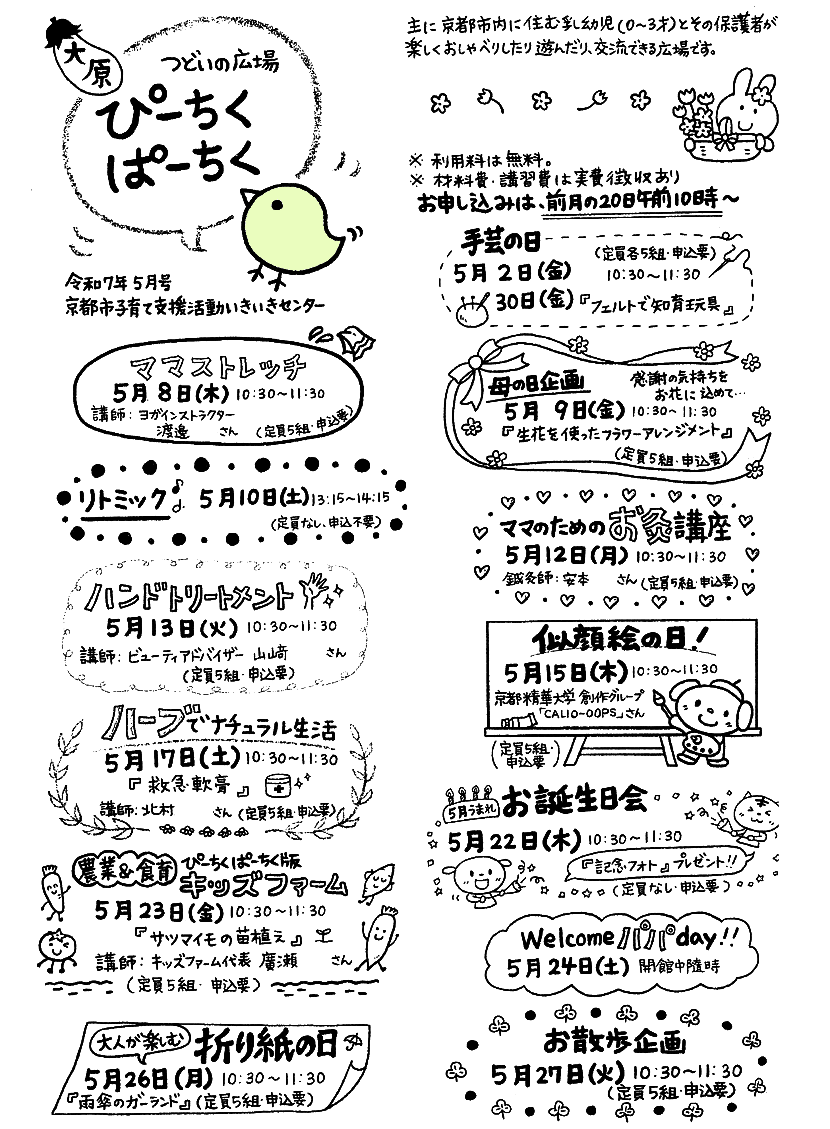 大原
つどいの広場
ぴーちく
ぱーちく
令和7年5月号
京都市子育て支援活動いきいきセンター
主に京都市内に住む乳幼児(0〜3才)とその保護者が
楽しくおしゃべりしたり遊んだり、交流できる広場です。
※ 利用料は無料。
※ 材料費・講習費は実費徴収あり
お申し込みは、前月の20日午前10時〜
手芸の日
(定員各5組・申込要)
5月2日(金) 10:30〜11:30
30日(金)『フェルトで知育玩具』
ママストレッチ
5月8日(木) 10:30〜11:30
講師: ヨガインストラクター
渡邉 さん (定員5組・申込要)
母の日企画
感謝の気持ちを
お花に込めて…
5月9日(金) 10:30〜11:30
『生花を使ったフラワーアレンジメント』
(定員5組・申込要)
リトミック♪ 5月10日(土)13:15〜14:15
(定員なし、申込不要)
ママのためのお灸講座
5月12日(月) 10:30〜11:30
鍼灸師: 安本 さん (定員5組・申込要)
ハンドトリートメント
5月13日(火) 10:30〜11:30
講師: ビューティアドバイザー 山﨑 さん
(定員5組・申込要)
似顔絵の日!
5月15日(木) 10:30〜11:30
京都精華大学 創作グループ
「CALIO-OOPS」さん
(定員5組・
申込要)
ハーブでナチュラル生活
5月17日(土) 10:30〜11:30
『救急軟膏』
講師: 北村 さん (定員5組・申込要)
5月うまれ お誕生日会
5月22日(木) 10:30〜11:30
『記念フォト』プレゼント!!
(定員なし・申込要)
農業&食育 ぴーちくぱーちく版
キッズファーム
5月23日(金) 10:30〜11:30
『サツマイモの苗植え』
講師: キッズファーム代表 廣瀬 さん
(定員5組・申込要)
Welcomeパパday!!
5月24日(土) 開館中随時
大人が楽しむ 折り紙の日
5月26日(月) 10:30〜11:30
『雨傘のガーランド』(定員5組・申込要)
お散歩企画
5月27日(火) 10:30〜11:30
(定員5組・申込要)